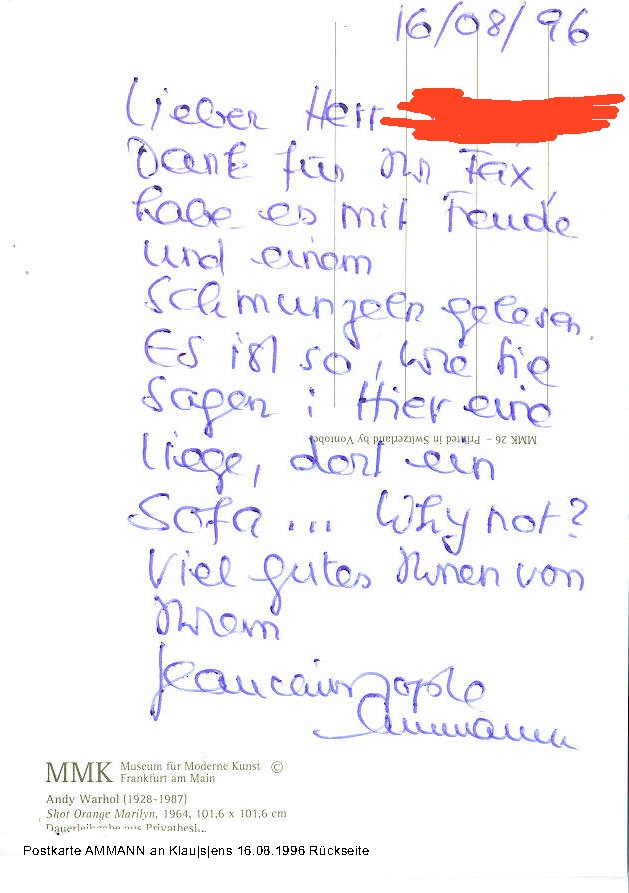 16/08/96
Lieber Herr
Dank für Ihr Fax,
habe es mit Freude
und einem
Schmunzeln gelesen.
Es ist so, wie Sie
sagen: Hier eine
Liege, dort ein
Sofa... Why not?
Viel gutes Ihnen von
Ihrem
Jeanchristophe
Ammann
MMK 26 – Printed in Switzerland by Vontobel
MMK Museum für Moderne Kunst ©
Frankfurt am Main
Andy Warhol (1928-1987)
Shot Orange Marilyn, 1964, 101,6 x 101,6 cm
Dauerleihgabe aus Privatbesitz
Postkarte AMMANN an Klau|s|ens 16.08.1996 Rückseite